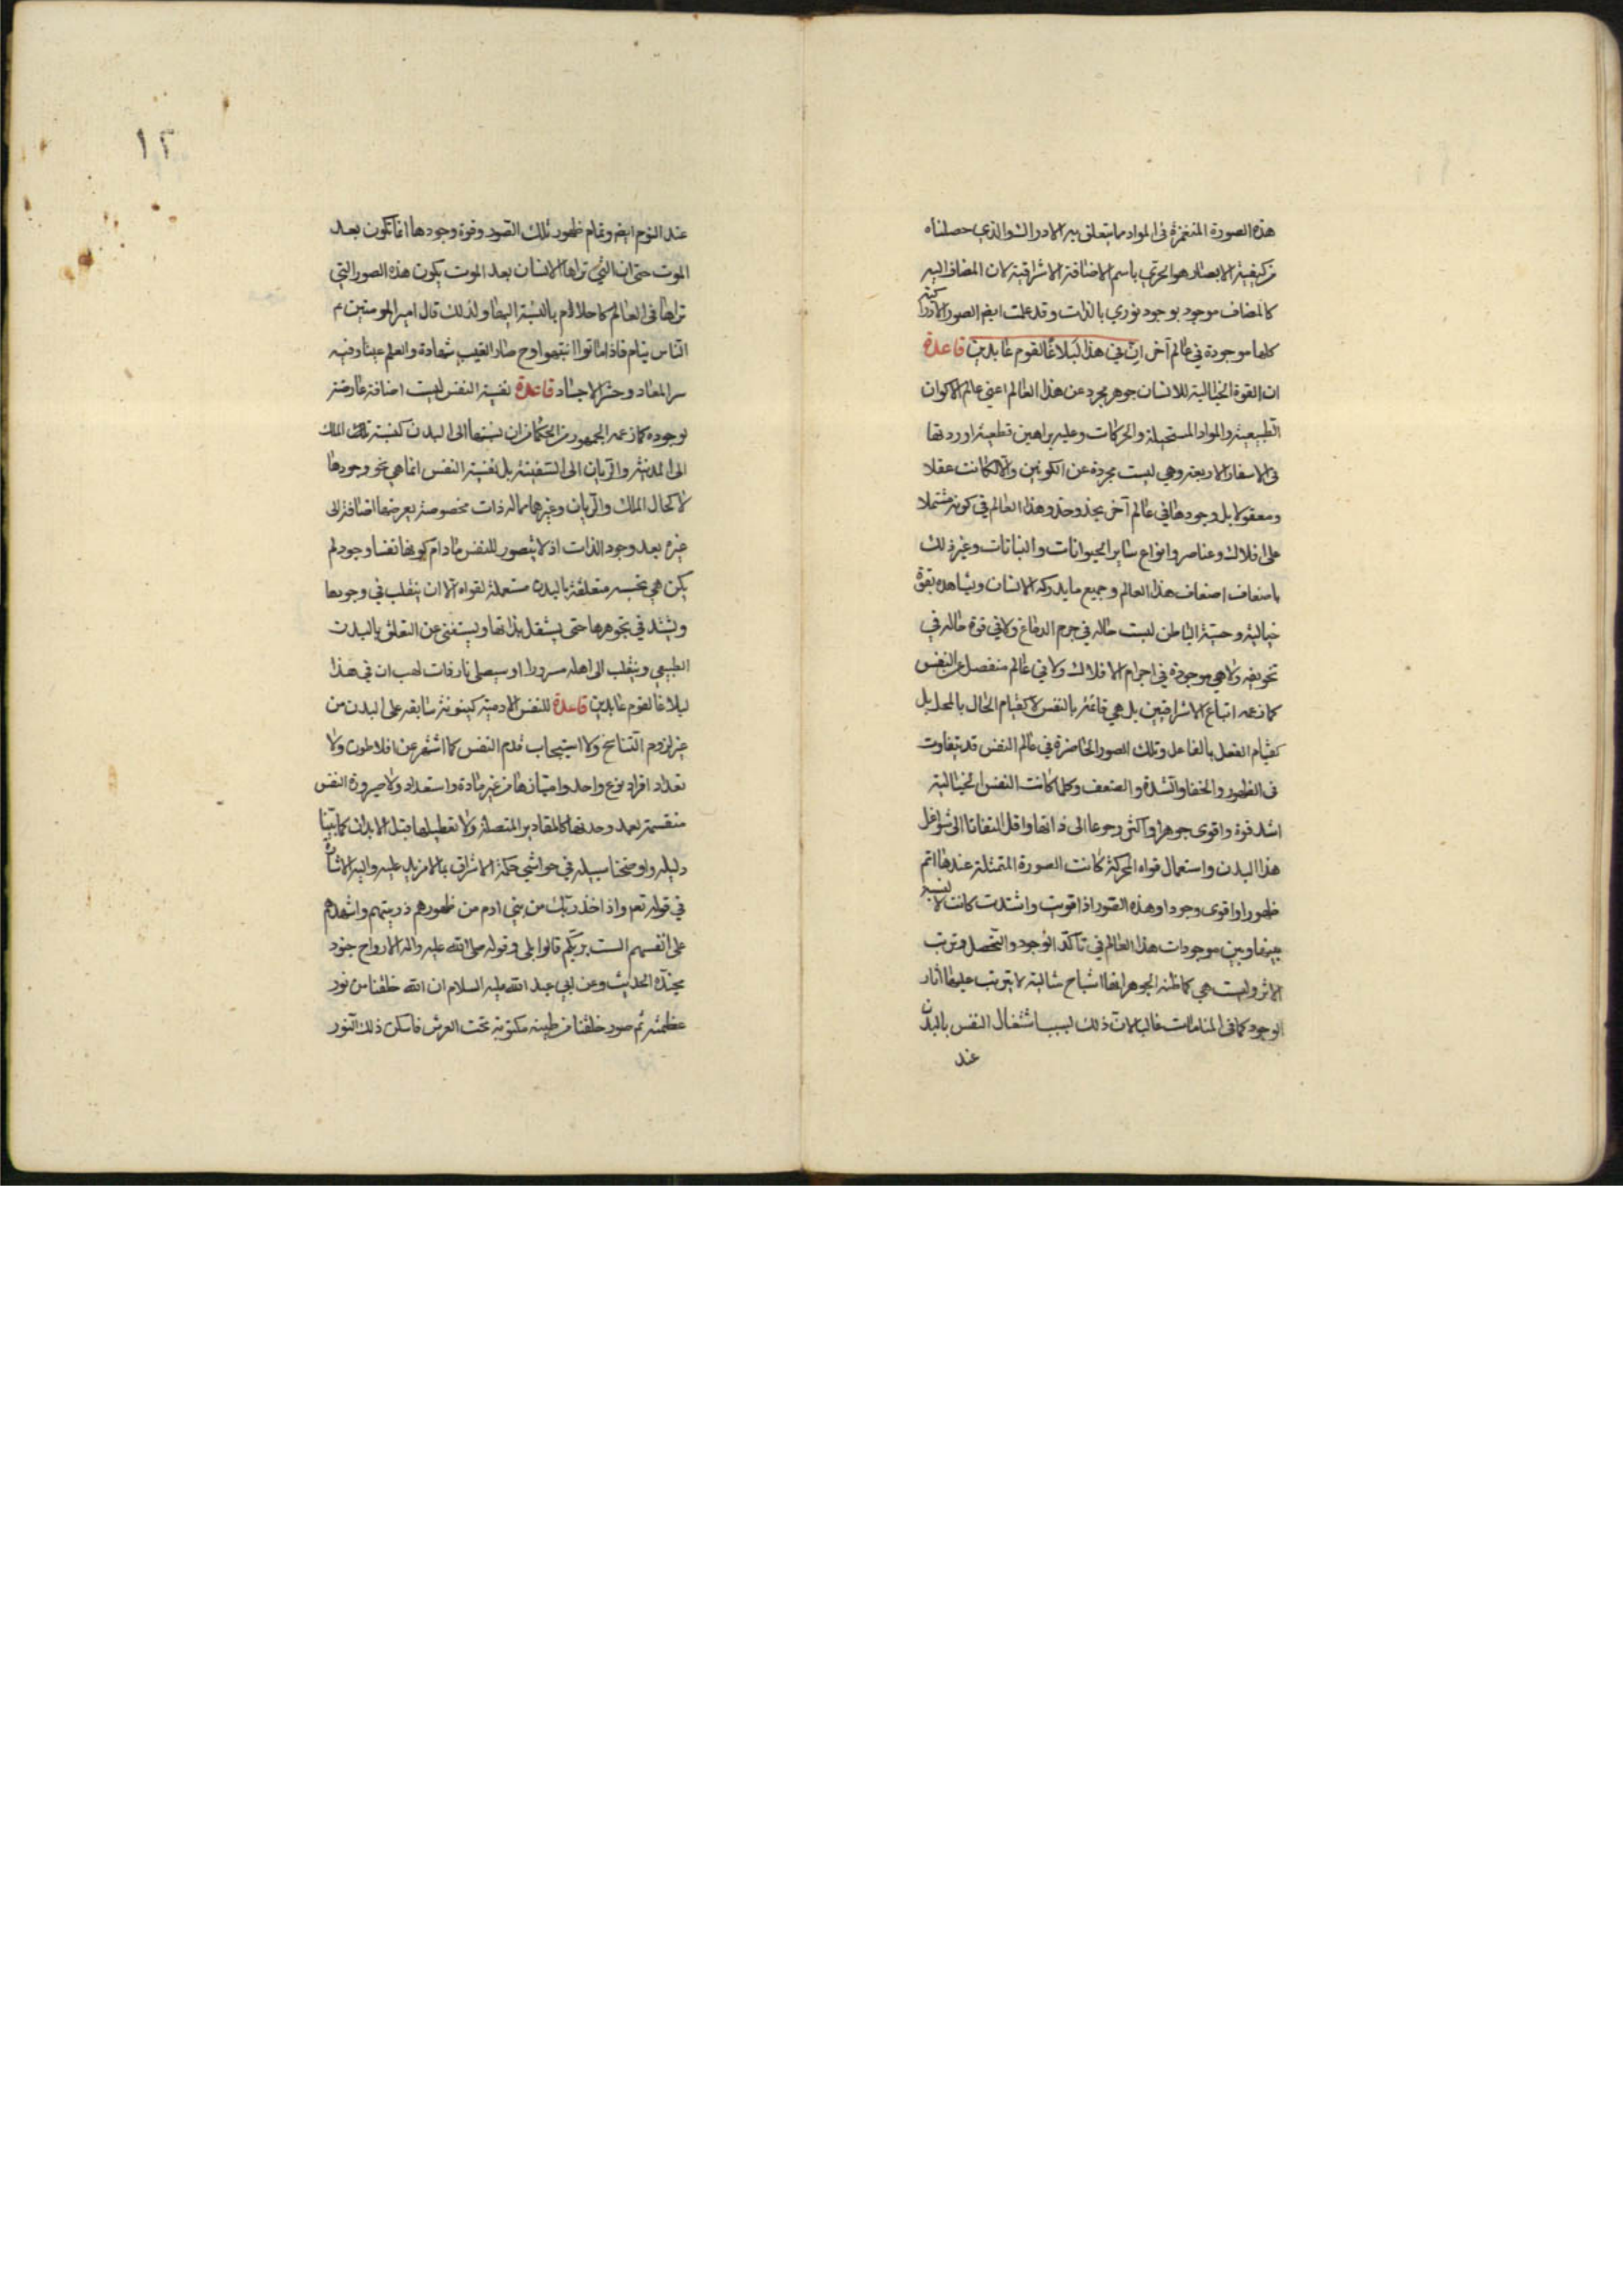 هذه الصورة المنغمرة فى المواد مما يتعلق به الادراك والذي حصلناه
من كيفية الابصار هو الحرى باسم الاضافة الاشراقية لان المضاف اليه
كالمضاف موجود بوجود نوري بالذات وقد علمت ايضا الصور الادراكية
كلها موجودة في عالم آخر ان في هذا لبلاغا لقوم عابدين قاعدة
ان القوة الخيالية للانسان جوهر مجرد عن هذا العالم اعني عالم الاكوان
الطبيعية والمواد المستحيلة والحركات وعليه براهين قطعية اوردتها
فى الاسفار الاربعة وهي ليست مجردة عن الكونين والا لكانت عقلا
ومعقولا بل وجودها في عالم آخر يحذو حذو هذا العالم في كونه مشتملا
على افلاك وعناصر وانواع ساير الحيوانات والنباتات وغير ذلك
باضعاف اضعاف هذا العالم وجميع ما يدركه الانسان ويشاهده بقوة
خيالية وحسية الباطن ليست حاله في جرم الدماغ ولا في قوة حاله في
تجويفه ولا هي موجودة في اجرام الافلاك ولا في عالم منفصل عن النفس
كما زعمه اتباع الاشراقيين بل هي قائمة بالنفس لا كقيام الحال بالمحل بل
كقيام الفعل بالفاعل وتلك الصور الحاضرة في عالم النفس قد يتفاوت
فى الظهور والخفا والشدة والضعف وكلما كانت النفس الخيالية
اشد قوة واقوى جوهرا واكثر رجوعا الى ذاتها واقل التفاتا الى شواغل
هذا البدن واستعمال قواه المحركة كانت الصورة المتمثلة عندها اتم
ظهورا واقوى وجودا وهذه الصور اذا قويت واشتدت كانت لا نسبة
بينها وبين موجودات هذا العالم في تاكد الوجود والتحصل وترتب
الاثر وليست هي كما ظنه الجوهر انها اشباح مثالية لا يترتب عليها آثار
الوجود كما فى المنامات غالبا لان ذلك لسبب اشتغال النفس بالبدن
عند
١٢
عند النوم ايضا وتمام ظهور تلك الصور وقوة وجودها انما تكون بعد
الموت حتى ان التي تراها الانسان بعد الموت يكون هذه الصور التي
تراها فى العالم كاحلام بالنسبة اليها ولذلك قال امير المومنين ع
الناس نيام فاذا ماتوا انتبهوا وح صار الغيب شهادة والعلم عينا وفيه
سر المعاد وحشر الاجساد قاعدة نفسية النفس ليست اضافة عارضة
لوجوده كما زعمه الجمهور من الحكما من ان نسبتها الى البدن كنسبة تلك الملك
الى المدينة والربان الى السفينة بل نفسية النفس انما هي نحو وجودها
لا كحال الملك والربان وغيرهما مما له ذات مخصوصة يعرضها اضافة الى
غيره بعد وجود الذات اذ لا يتصور للنفس ما دام كونها نفسا وجود لم
يكن هي بحسبه متعلقة بالبدن مستعملة لقواه الا ان ينقلب في وجودها
ويشتد في تجوهرها حتى يستقل بذاتها ويستغنى عن التعلق بالبدن
الطبيعي وينقلب الى اهله مسرورا او سيصلى نارا ذات لهب ان في هذا
لبلاغا لقوم عابدين قاعدة للنفس الادمية كينونة سابقه على البدن من
غير لزوم التناسخ ولا استيجاب قدم النفس كما اشتهر عن افلاطون ولا
تعداد افراد نوع واحد وامتيازها من غير مادة واستعداد ولا صيرورة النفس
منقسمة بعد وحدتها كالمقادير المتصلة ولا تعطيلها قبل الابدان كما بينا
دليله واوضحنا سبيله في حواشي حكمة الاشراق بما لا مزيد عليه واليه الاشارة
في قوله تعم واذ اخذ ربك من بني ادم من ظهورهم ذريتهم واشهدهم
على انفسهم الست بربكم قالوا بلى وقوله صلى الله عليه واله الارواح جنود
مجندة الحديث وعن ابي عبد الله عليه السلام ان الله خلقنا من نور
عظمته ثم صور خلقنا من طينه مكنونة تحت العرش فاسكن ذلك النور